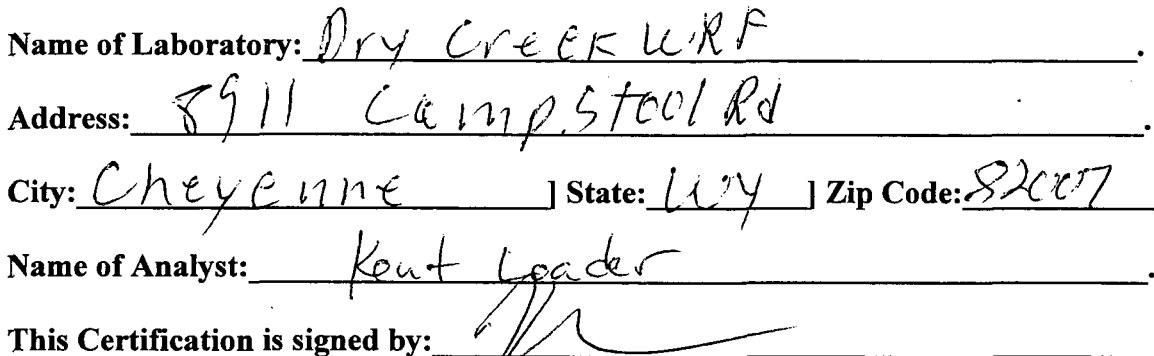 Name of Laboratory: Dry Creek WRF.
Address: 8911 Campstool Rd.
City: Cheyenne ] State: WY ] Zip Code: 82007
Name of Analyst: Kent Loader.
This Certification is signed by: